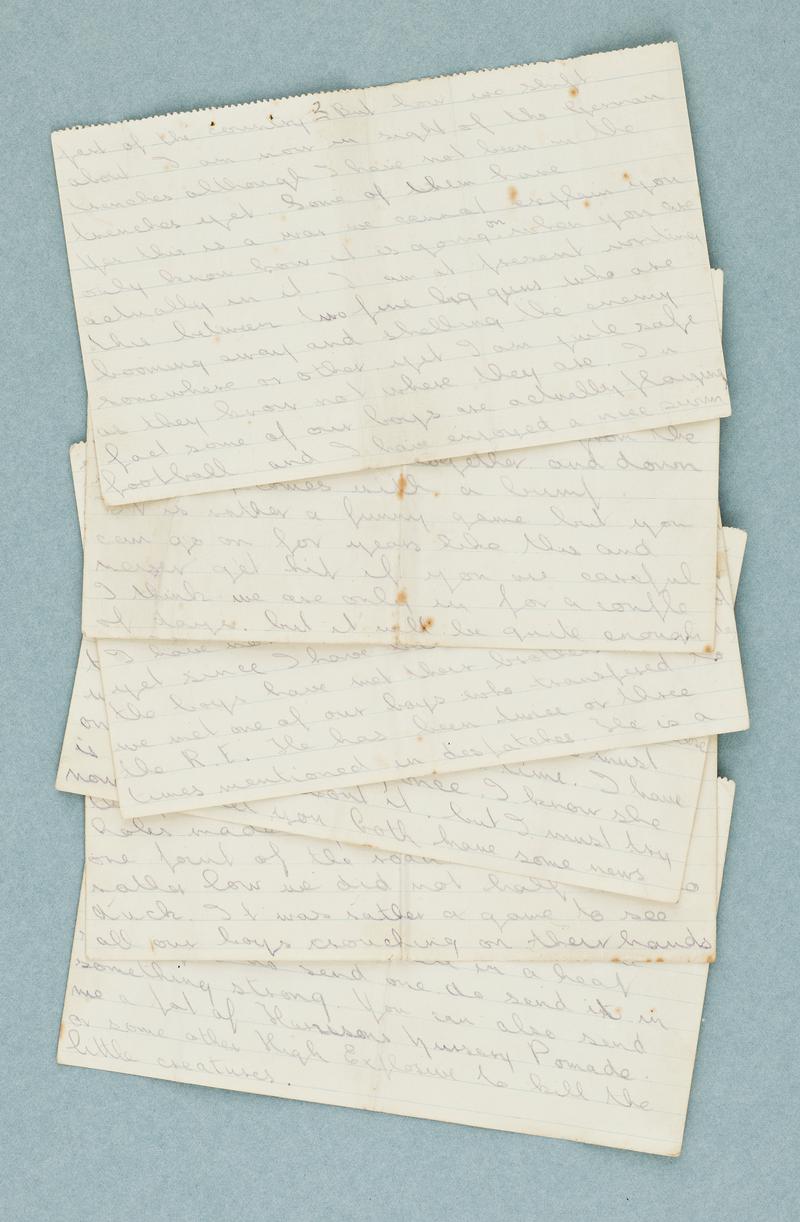 2
part of the country. But how we shift
about I am now in sight of the German
trenches although I have not been in the
trenches yet some of them have
Yes this is a war we cannot explain you
only know how it is going on when you are
actually in it I am at present writing
this between two fine big guns who are
booming away and shelling the enemy
somewhere or other yet I am quite safe
as they know not where they are. In
fact some of our boys are actually playing
football and I have enjoyed a nice swim
from the
together and down
comes with a bump.
It is rather a funny game but you
can go on for years like this and
never get hit if you are careful
I think we are only in for a couple
of days. but it will be quite enough
I have
yet since I have
the boys have met their brother
we met one of our boys who transfered to
the R.E. He has been twice or three
times mentioned in despatches He is a
on
is
now
must
time. I have
once. I know she
about it. but I must try
you both have some news
holes made
one point of the road
rather how we did not half
duck. It was rather a game to see
all our boys crouching on their hands
in a heap
something send one do send it in
something strong. You can also send
me a pot of Harrisons Nursery Pomade.
or some other High Explosive to kill the
little creatures.